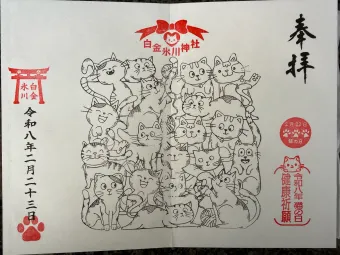 奉拝
白金氷川神社
白金
氷川
令和八年二月二十三日
猫の日
令和八年 猫の日
健康祈願